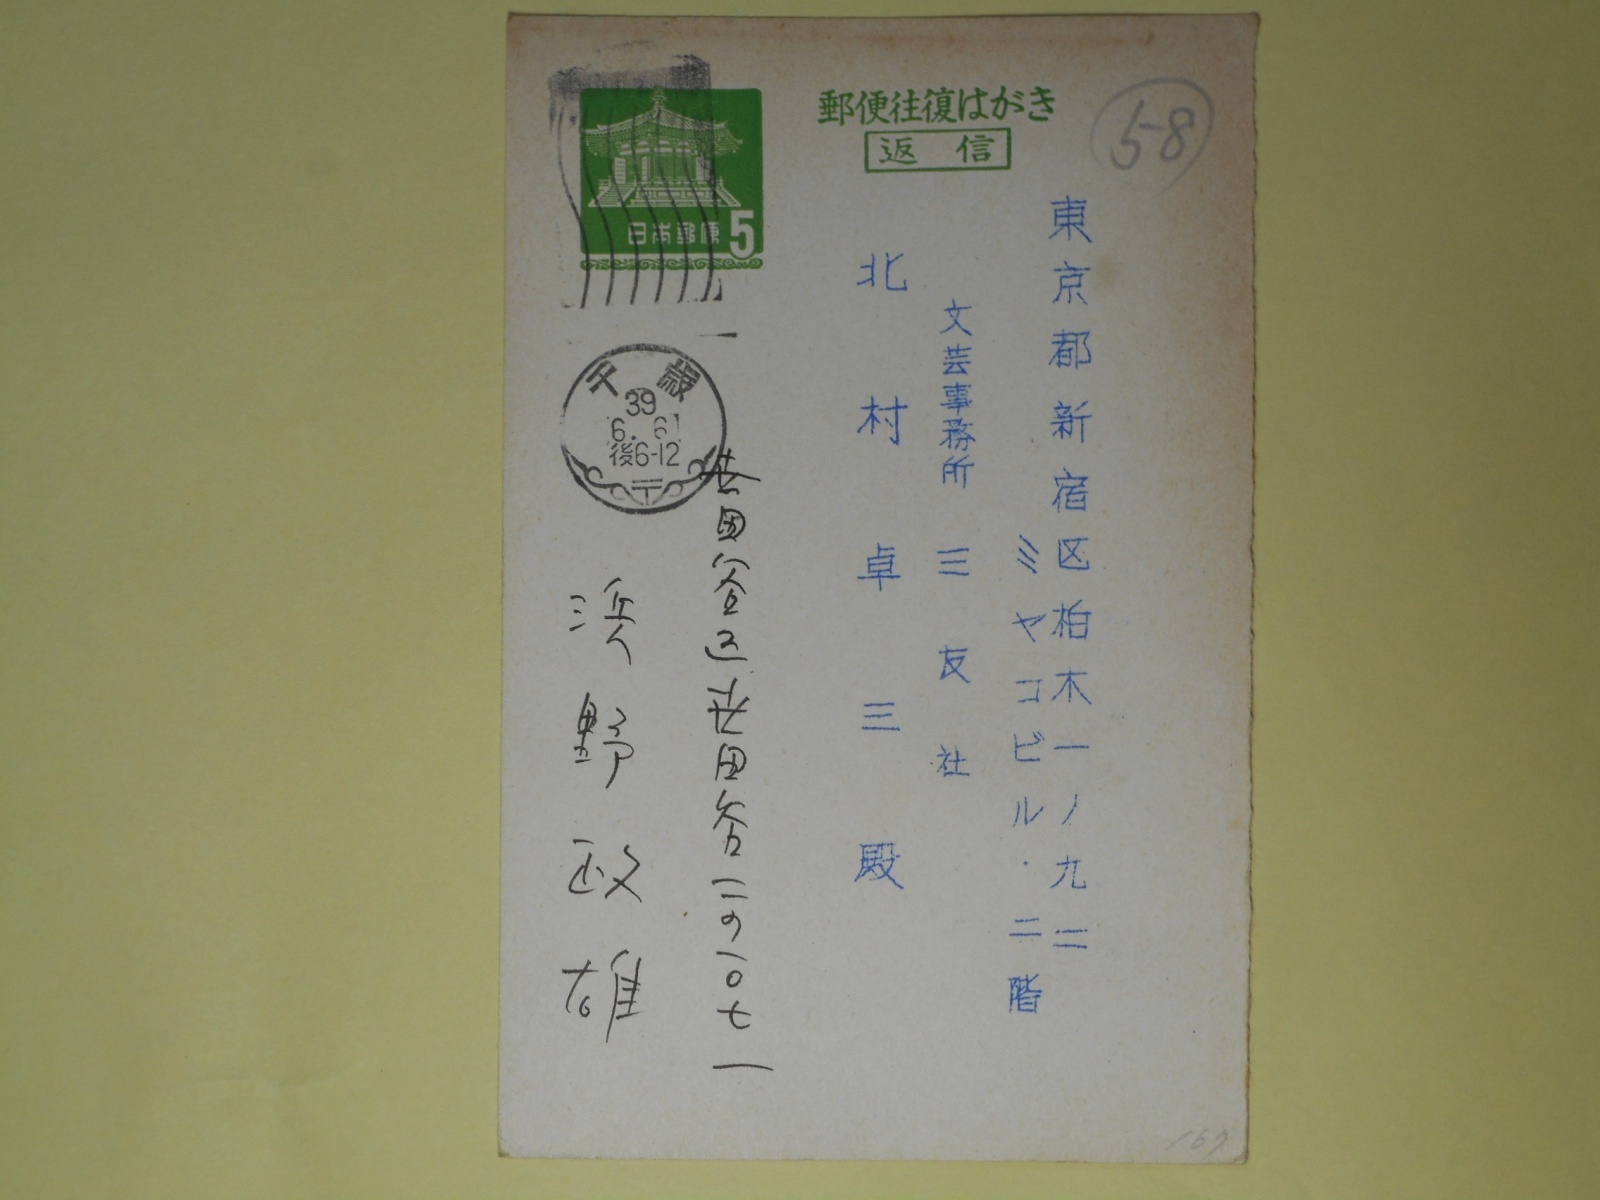 郵便往復はがき
返信
58
日本郵便 5
千歳
39
6. 6
後6-12
東京都新宿区柏木一ノ九二
ミヤコビル・二階
文芸事務所 三友社
北村卓三殿
世田谷区世田谷二の一〇七一
浜野政雄